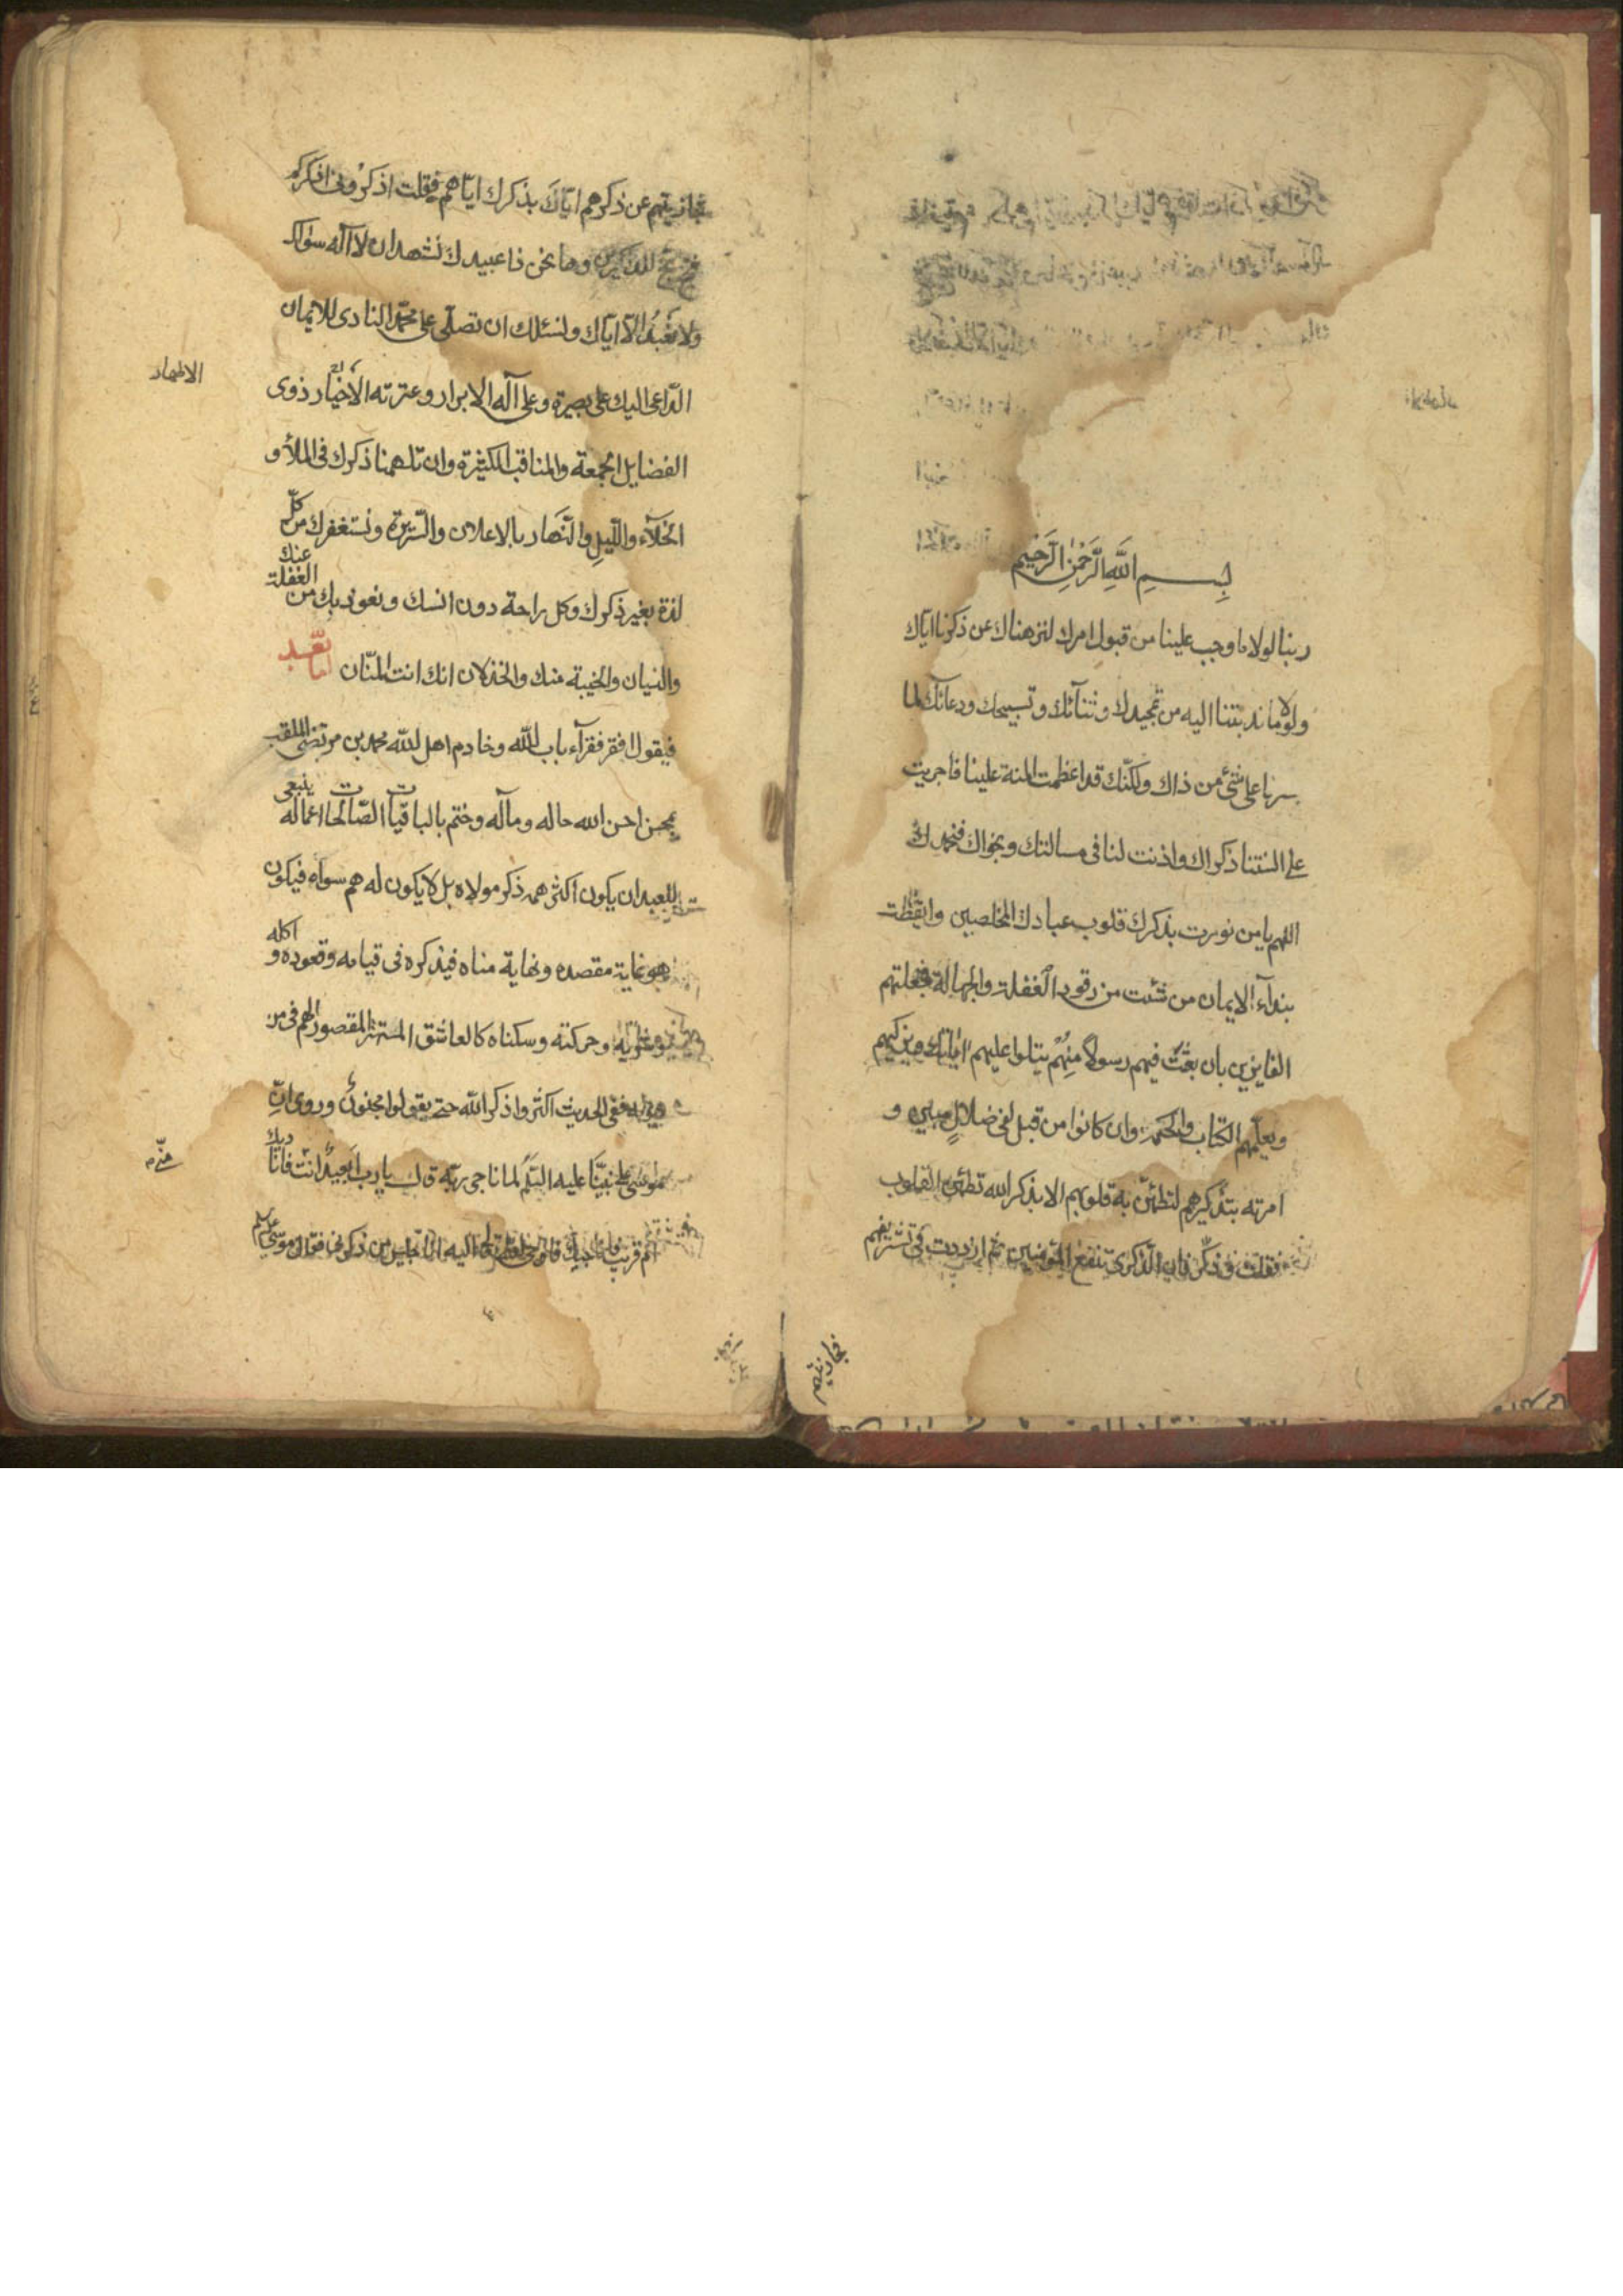 بسم الله الرحمن الرحيم
ربنا لولا ما وجب علينا من قبول امرك لنزهناك عن ذكرنا اياك
ولولا ما ندبتنا اليه من تمجيدك وثنائك وتسبيحك ودعائك لما
علی شیء من ذاك ولكنك قد اعظمت المنة علينا فاجريت
على السنتنا ذكراك واذنت لنا فى مسالتك ونجواك فنحمدك
اللهم يا من نورت بذكرك قلوب عبادك المخلصين وايقظت
بندآء الايمان من شئت من رقود الغفلة والجهالة فجعلتهم
الفايزين بان بعثت فيهم رسولا منهم يتلوا عليهم اياتك ويزكيهم
ويعلمهم الكتاب والحكمة وان كانوا من قبل لفى ضلال مبين و
امرته بتذكيرهم لتطمئن به قلوبهم الا بذكر الله تطمئن القلوب
فقلت فذكر فان الذكرى تنفع المؤمنين ثم ازددت فى تشريفهم
فجازيتهم
فجازيتهم عن ذكرهم اياك بذكرك اياهم فقلت اذكرونى اذكركم
للذاكرين وها نحن ذا عبيدك نشهد ان لا اله سواك
ولا نعبد الا اياك ونسئلك ان تصلى على محمد المنادى للايمان
الداعى اليك على بصيرة وعلى آله الابرار وعترته الاخيار ذوى
الاطهار
الفضايل الجمعة والمناقب الكثيرة وان تلهمنا ذكرك فى الملأ و
الخلآء والليل والنهار بالاعلان والسر وتستغفرك من كل
لذة بغير ذكرك وكل راحة دون انسك ونعوذ بك من الغفلة عنك
والنسيان والخيبة منك والخذلان انك انت المنان اما بعد
فيقول افقر فقرآء باب الله وخادم اهل الله محمد بن مرتضى الملقب
بمحسن احسن الله حاله ومآله وختم بالباقيات الصالحات اعماله ينبغى
للعبد ان يكون اكثر همه ذكر مولاه بل لا يكون له هم سواه فيكون
هو غاية مقصده ونهاية مناه فيذكره فى قيامه وقعوده و اكله
وحركته وسكناه كالعاشق المستهتر المقصور الهم فى من
يهواه ففى الحديث اكثروا ذكر الله حتى يقولوا مجنون وروى ان
موسى على نبينا عليه السلم لما ناجى ربه قال يا رب ابعيد انت فاناديك
ام قريب فاناجيك فاوحى الله اليه انا جليس من ذكرنى فقال موسى